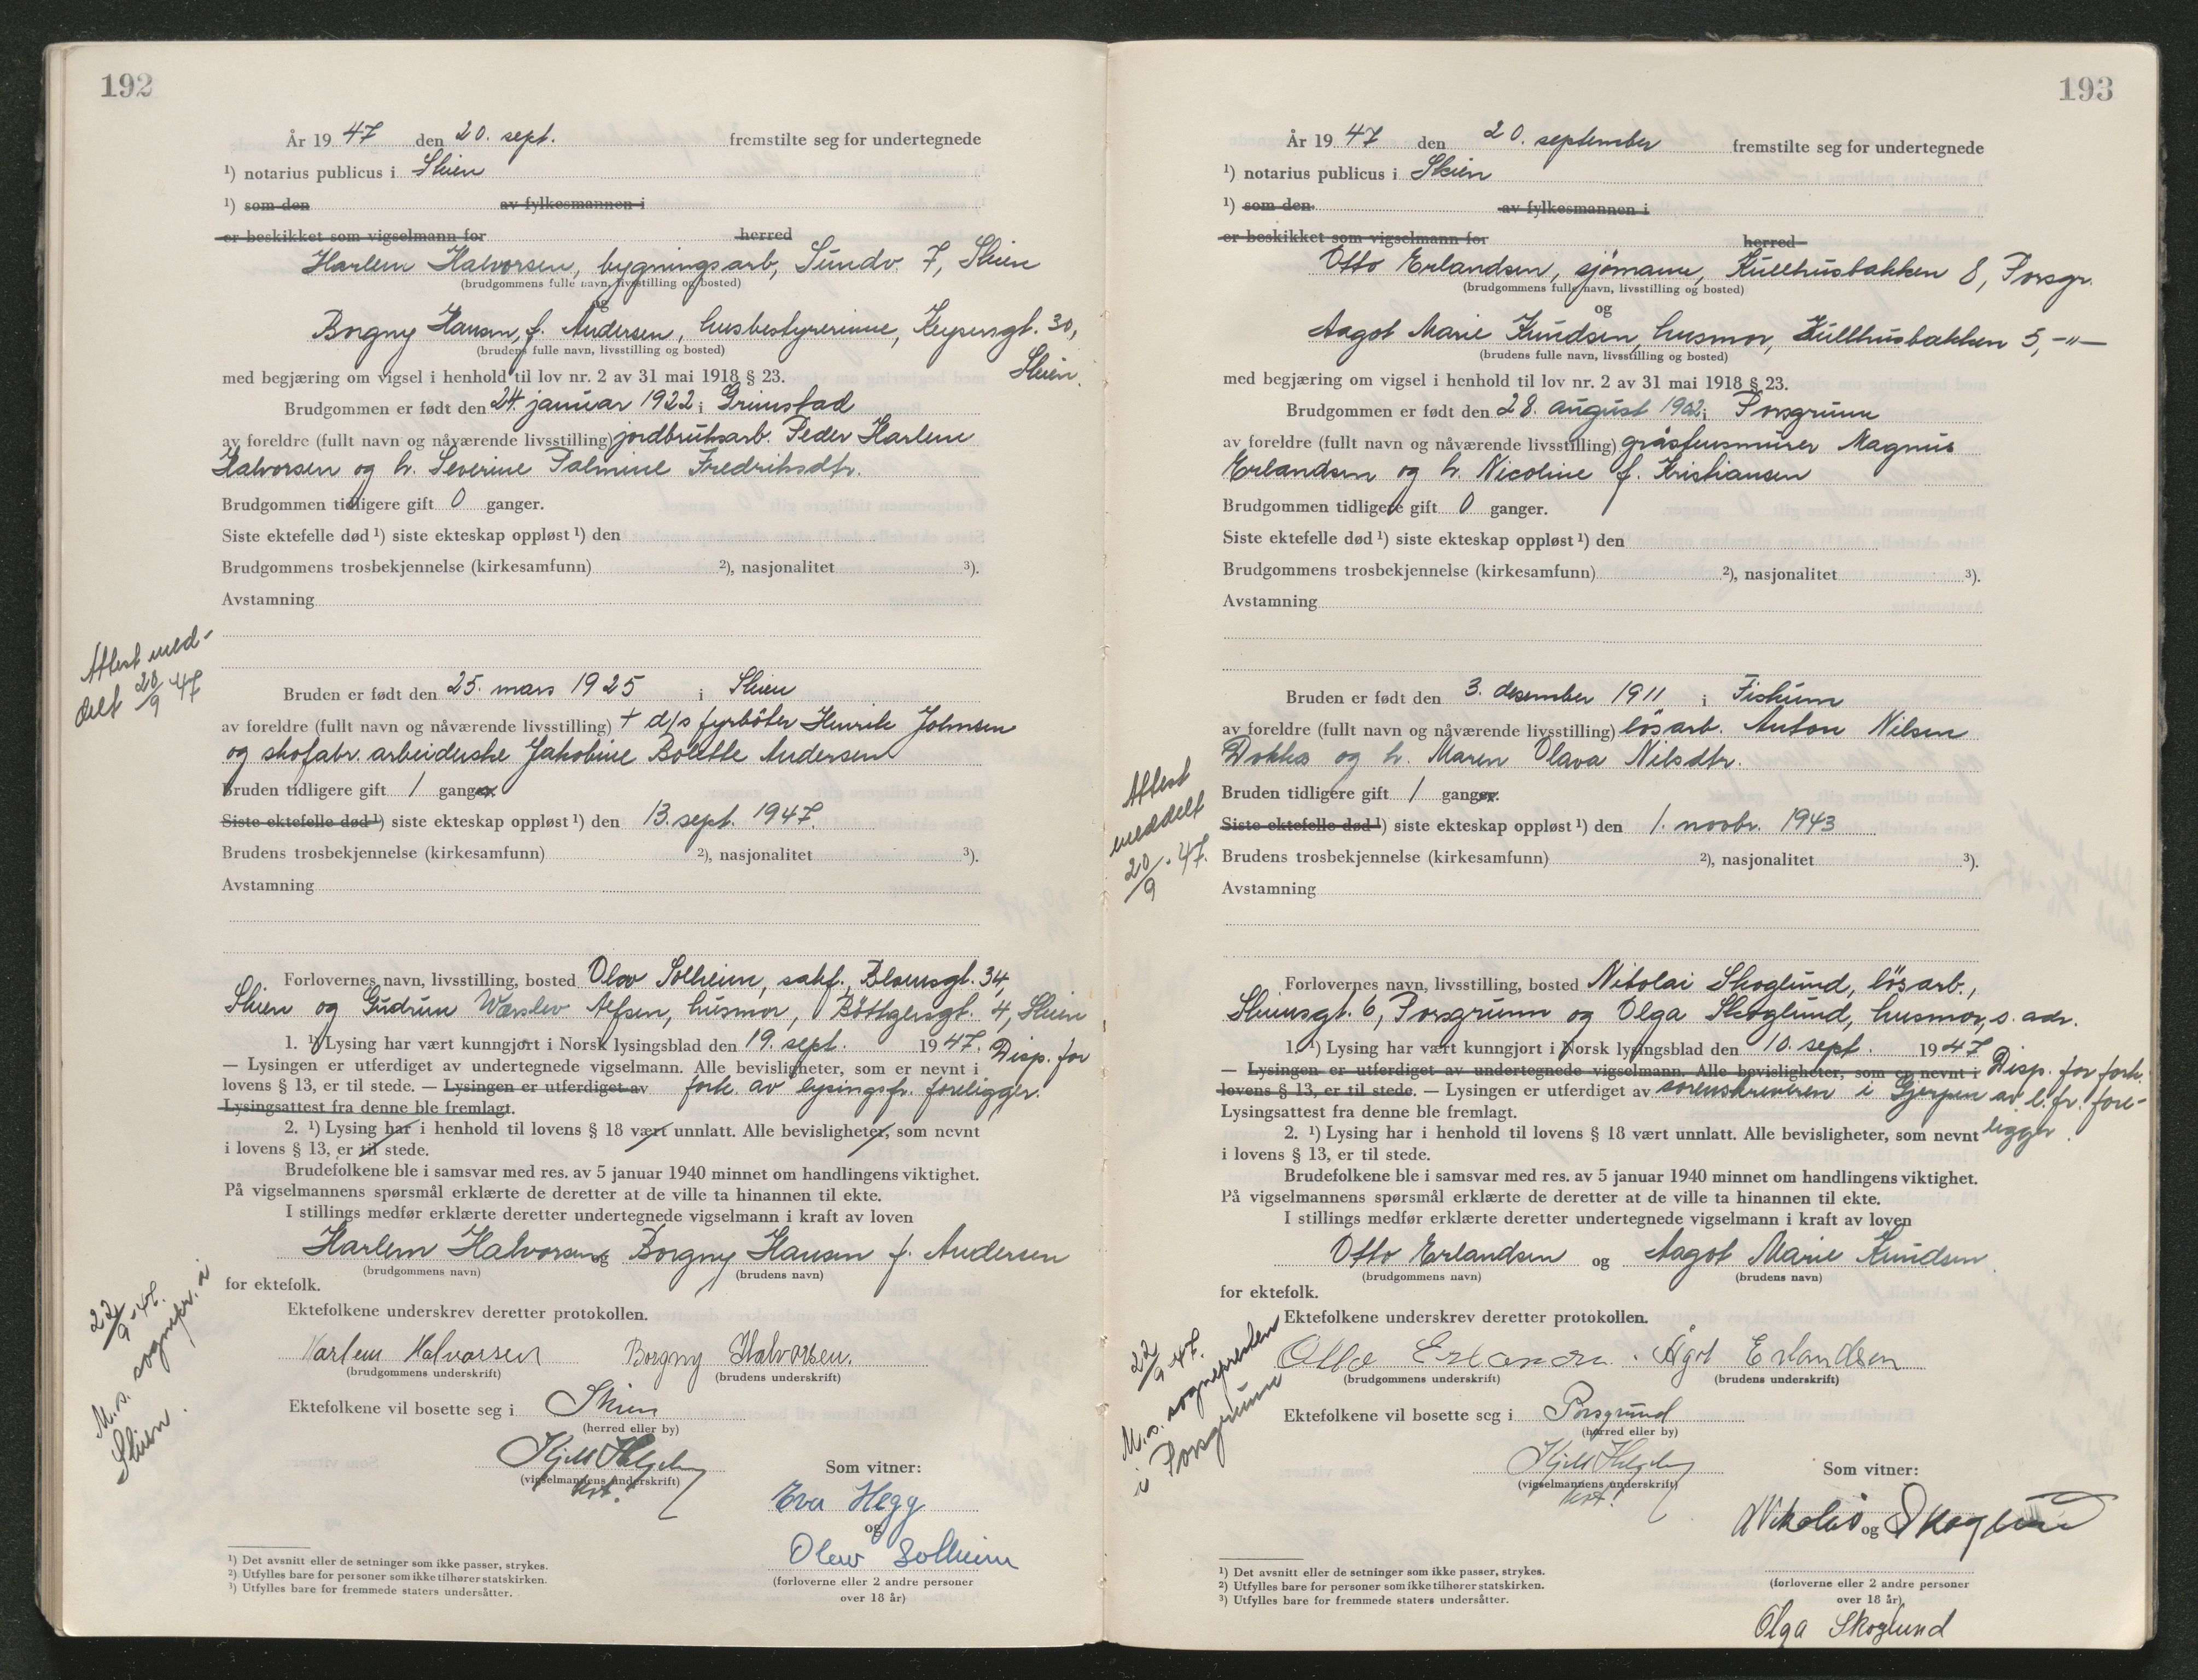 192
År 19 47 den 20. sept. fremstilte seg for undertegnede
¹) notarius publicus i Skien
¹) som den av fylkesmannen i
er beskikket som vigselmann for herred
Harlem Halvorsen, bygningsarb, Sundv. 7, Skien
(brudgommens fulle navn, livsstilling og bosted)
og
Borgny Hansen, f. Andersen, husbestyrerinne, Keysersgt. 30,
(brudens fulle navn, livsstilling og bosted)
Skien.
med begjæring om vigsel i henhold til lov nr. 2 av 31 mai 1918 § 23.
Brudgommen er født den 24. januar 1922 i Grimstad
av foreldre (fullt navn og nåværende livsstilling) jordbruksarb. Peder Harlem
Halvorsen og h. Severine Palmine Fredriksdtr.
Brudgommen tidligere gift 0 ganger.
Siste ektefelle død ¹) siste ekteskap oppløst ¹) den
Brudgommens trosbekjennelse (kirkesamfunn) ²), nasjonalitet ³).
Avstamning
Attest med-
delt 20/9 47
Bruden er født den 25. mars 1925 i Skien
av foreldre (fullt navn og nåværende livsstilling) + d/s fyrbøter Henrik Johnsen
og skofabr. arbeiderske Jakobine Bolette Andersen
Bruden tidligere gift 1 ganger.
Siste ektefelle død ¹) siste ekteskap oppløst ¹) den 13. sept. 1947.
Brudens trosbekjennelse (kirkesamfunn) ²), nasjonalitet ³).
Avstamning
Forlovernes navn, livsstilling, bosted Olav Solheim, sakf., Blomsgt. 34,
Skien og Gudrun Værslev Alfsen, husmor, Bøttgersgt. 4, Skien
1. ¹) Lysing har vært kunngjort i Norsk lysingsblad den 19. sept. 1947. Disp. for
— Lysingen er utferdiget av undertegnede vigselmann. Alle bevisligheter, som er nevnt i
lovens § 13, er til stede. — Lysingen er utferdiget av fork. av lysingsfr. foreligger.
Lysingsattest fra denne ble fremlagt.
2. ¹) Lysing har i henhold til lovens § 18 vært unnlatt. Alle bevisligheter, som nevnt
i lovens § 13, er til stede.
Brudefolkene ble i samsvar med res. av 5 januar 1940 minnet om handlingens viktighet.
På vigselmannens spørsmål erklærte de deretter at de ville ta hinannen til ekte.
I stillings medfør erklærte deretter undertegnede vigselmann i kraft av loven
Harlem Halvorsen og Borgny Hansen f. Andersen
(brudgommens navn) (brudens navn)
for ektefolk.
Ektefolkene underskrev deretter protokollen.
22/9-47.
M.s. sognepr. i
Skien.
Harlem Halvorsen Borgny Halvorsen.
(brudgommens underskrift) (brudens underskrift)
Ektefolkene vil bosette seg i Skien
(herred eller by)
Kjell Helgeby
(vigselmannens underskrift)
kst.
Som vitner:
Eva Hegg
og
Olav Solheim
(forloverne eller 2 andre personer
over 18 år)
¹) Det avsnitt eller de setninger som ikke passer, strykes.
²) Utfylles bare for personer som ikke tilhører statskirken.
³) Utfylles bare for fremmede staters undersåtter.
193
År 19 47 den 20. september fremstilte seg for undertegnede
¹) notarius publicus i Skien
¹) som den av fylkesmannen i
er beskikket som vigselmann for herred
Otto Erlandsen, sjømann, Kullhusbakken 8, Porsgr.
(brudgommens fulle navn, livsstilling og bosted)
og
Aagot Marie Knudsen, husmor, Kullhusbakken 5, —"—
(brudens fulle navn, livsstilling og bosted)
med begjæring om vigsel i henhold til lov nr. 2 av 31 mai 1918 § 23.
Brudgommen er født den 28. august 1902 i Porsgrunn
av foreldre (fullt navn og nåværende livsstilling) gråstensmurer Magnus
Erlandsen og h. Nicoline f. Kristiansen
Brudgommen tidligere gift 0 ganger.
Siste ektefelle død ¹) siste ekteskap oppløst ¹) den
Brudgommens trosbekjennelse (kirkesamfunn) ²), nasjonalitet ³).
Avstamning
Bruden er født den 3. desember 1911 i Fiskum
av foreldre (fullt navn og nåværende livsstilling) løsarb. Anton Nilsen
Dokka og h. Maren Olava Nilsdtr.
Attest
meddelt
20/9-47.
Bruden tidligere gift 1 ganger.
Siste ektefelle død ¹) siste ekteskap oppløst ¹) den 1. novbr. 1943
Brudens trosbekjennelse (kirkesamfunn) ²), nasjonalitet ³).
Avstamning
Forlovernes navn, livsstilling, bosted Nikolai Skoglund, løsarb.,
Skiensgt. 6, Porsgrunn og Olga Skoglund, husmor, s. adr.
1. ¹) Lysing har vært kunngjort i Norsk lysingsblad den 10. sept. 1947
— Lysingen er utferdiget av undertegnede vigselmann. Alle bevisligheter, som er nevnt i Disp. for fork.
lovens § 13, er til stede. — Lysingen er utferdiget av sorenskriveren i Gjerpen av l.fr. fore-
Lysingsattest fra denne ble fremlagt.
2. ¹) Lysing har i henhold til lovens § 18 vært unnlatt. Alle bevisligheter, som nevnt ligger.
i lovens § 13, er til stede.
Brudefolkene ble i samsvar med res. av 5 januar 1940 minnet om handlingens viktighet.
På vigselmannens spørsmål erklærte de deretter at de ville ta hinannen til ekte.
I stillings medfør erklærte deretter undertegnede vigselmann i kraft av loven
Otto Erlandsen og Aagot Marie Knudsen
(brudgommens navn) (brudens navn)
for ektefolk.
Ektefolkene underskrev deretter protokollen.
22/9-47.
M.s. sognepresten
i Porsgrunn
Otto Erlandsen. Ågot Erlandsen
(brudgommens underskrift) (brudens underskrift)
Ektefolkene vil bosette seg i Porsgrund
(herred eller by)
Kjell Helgeby
(vigselmannens underskrift)
kst.
Som vitner:
Nikolai og Skoglund
(forloverne eller 2 andre personer
over 18 år)
Olga Skoglund
¹) Det avsnitt eller de setninger som ikke passer, strykes.
²) Utfylles bare for personer som ikke tilhører statskirken.
³) Utfylles bare for fremmede staters undersåtter.